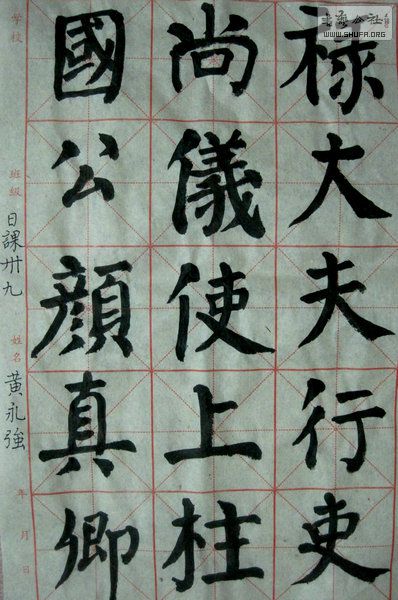 禄大夫行吏
尚儀使上柱
國公顔真卿
學校
班級
日課卅九
姓名
黃永強
年月日
書藝公社
WWW.SHUFA.ORG